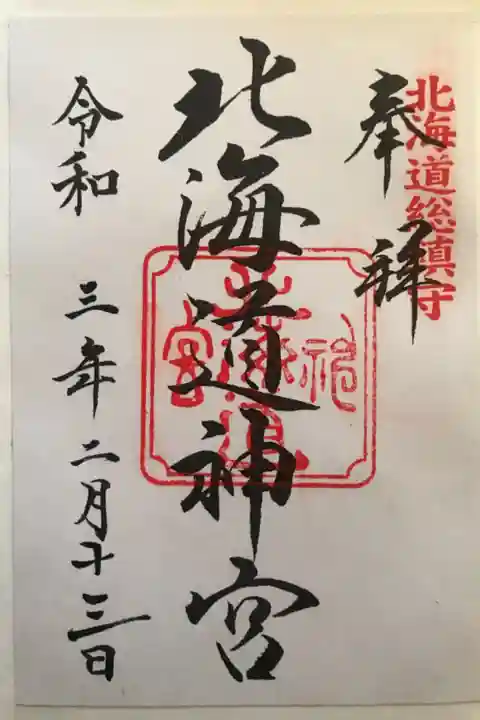 北海道総鎮守
奉拝
北海道神宮
北海道神宮
令和 三年二月十三日